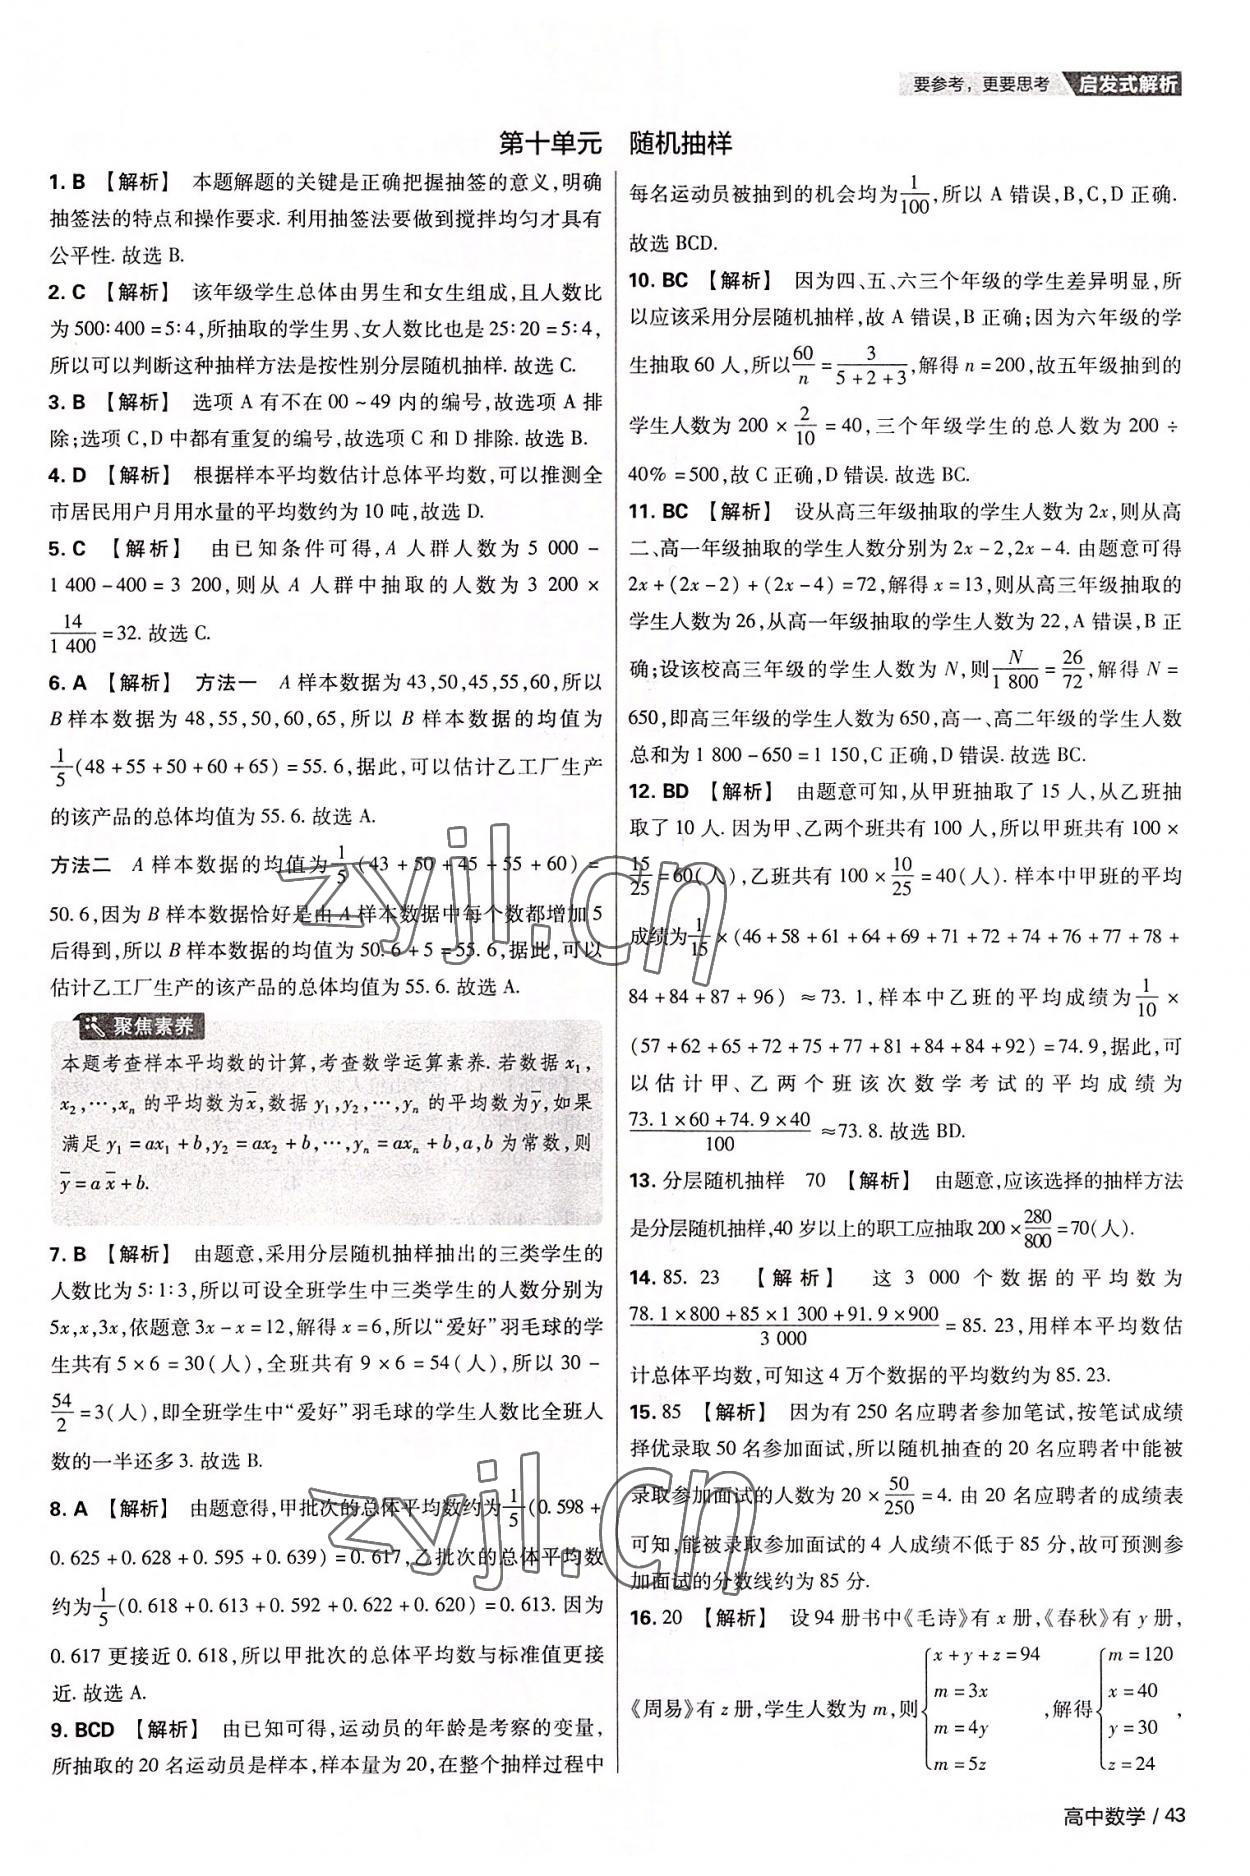 要参考，更要思考 启发式解析
第十单元 随机抽样
1. B 【解析】 本题解题的关键是正确把握抽签的意义,明确
抽签法的特点和操作要求. 利用抽签法要做到搅拌均匀才具有
公平性. 故选 B.
2. C 【解析】 该年级学生总体由男生和女生组成,且人数比
为 500∶400 = 5∶4,所抽取的学生男、女人数比也是 25∶20 = 5∶4,
所以可以判断这种抽样方法是按性别分层随机抽样. 故选 C.
3. B 【解析】 选项 A 有不在 00 ~ 49 内的编号,故选项 A 排
除;选项 C,D 中都有重复的编号,故选项 C 和 D 排除. 故选 B.
4. D 【解析】 根据样本平均数估计总体平均数,可以推测全
市居民用户月用水量的平均数约为 10 吨,故选 D.
5. C 【解析】 由已知条件可得,A 人群人数为 5 000 -
1 400 - 400 = 3 200,则从 A 人群中抽取的人数为 3 200 ×
14/1 400 = 32. 故选 C.
6. A 【解析】 方法一 A 样本数据为 43,50,45,55,60,所以
B 样本数据为 48,55,50,60,65,所以 B 样本数据的均值为
1/5(48 + 55 + 50 + 60 + 65) = 55. 6,据此,可以估计乙工厂生产
的该产品的总体均值为 55. 6. 故选 A.
方法二 A 样本数据的均值为 1/5(43 + 50 + 45 + 55 + 60) =
50. 6,因为 B 样本数据恰好是由 A 样本数据中每个数都增加 5
后得到,所以 B 样本数据的均值为 50. 6 + 5 = 55. 6,据此,可以
估计乙工厂生产的该产品的总体均值为 55. 6. 故选 A.
聚焦素养
本题考查样本平均数的计算,考查数学运算素养. 若数据 x₁,
x₂,⋯,xₙ 的平均数为x̄,数据 y₁,y₂,⋯,yₙ 的平均数为ȳ,如果
满足 y₁ = ax₁ + b,y₂ = ax₂ + b,⋯,yₙ = axₙ + b,a,b 为常数,则
ȳ = a x̄ + b.
7. B 【解析】 由题意,采用分层随机抽样抽出的三类学生的
人数比为 5∶1∶3,所以可设全班学生中三类学生的人数分别为
5x,x,3x,依题意 3x - x = 12,解得 x = 6,所以“爱好”羽毛球的学
生共有 5 × 6 = 30(人),全班共有 9 × 6 = 54(人),所以 30 -
54/2 = 3(人),即全班学生中“爱好”羽毛球的学生人数比全班人
数的一半还多 3. 故选 B.
8. A 【解析】 由题意得,甲批次的总体平均数约为 1/5(0. 598 +
0. 625 + 0. 628 + 0. 595 + 0. 639) = 0. 617,乙批次的总体平均数
约为 1/5(0. 618 + 0. 613 + 0. 592 + 0. 622 + 0. 620) = 0. 613. 因为
0. 617 更接近 0. 618,所以甲批次的总体平均数与标准值更接
近. 故选 A.
9. BCD 【解析】 由已知可得,运动员的年龄是考察的变量,
所抽取的 20 名运动员是样本,样本量为 20,在整个抽样过程中
每名运动员被抽到的机会均为 1/100,所以 A 错误,B,C,D 正确.
故选 BCD.
10. BC 【解析】 因为四、五、六三个年级的学生差异明显,所
以应该采用分层随机抽样,故 A 错误,B 正确;因为六年级的学
生抽取 60 人,所以 60/n = 3/(5 + 2 + 3),解得 n = 200,故五年级抽到的
学生人数为 200 × 2/10 = 40,三个年级学生的总人数为 200 ÷
40% = 500,故 C 正确,D 错误. 故选 BC.
11. BC 【解析】 设从高三年级抽取的学生人数为 2x,则从高
二、高一年级抽取的学生人数分别为 2x - 2,2x - 4. 由题意可得
2x + (2x - 2) + (2x - 4) = 72,解得 x = 13,则从高三年级抽取的
学生人数为 26,从高一年级抽取的学生人数为 22,A 错误,B 正
确;设该校高三年级的学生人数为 N,则 N/1 800 = 26/72,解得 N =
650,即高三年级的学生人数为 650,高一、高二年级的学生人数
总和为 1 800 - 650 = 1 150,C 正确,D 错误. 故选 BC.
12. BD 【解析】 由题意可知,从甲班抽取了 15 人,从乙班抽
取了 10 人. 因为甲、乙两个班共有 100 人,所以甲班共有 100 ×
15/25 = 60(人),乙班共有 100 × 10/25 = 40(人). 样本中甲班的平均
成绩为 1/15 × (46 + 58 + 61 + 64 + 69 + 71 + 72 + 74 + 76 + 77 + 78 +
84 + 84 + 87 + 96) ≈ 73. 1,样本中乙班的平均成绩为 1/10 ×
(57 + 62 + 65 + 72 + 75 + 77 + 81 + 84 + 84 + 92) = 74. 9,据此,可
以估计甲、乙两个班该次数学考试的平均成绩为
(73. 1 × 60 + 74. 9 × 40)/100 ≈ 73. 8. 故选 BD.
13. 分层随机抽样 70 【解析】 由题意,应该选择的抽样方法
是分层随机抽样,40 岁以上的职工应抽取 200 × 280/800 = 70(人).
14. 85. 23 【解析】 这 3 000 个数据的平均数为
(78. 1 × 800 + 85 × 1 300 + 91. 9 × 900)/3 000 = 85. 23,用样本平均数估
计总体平均数,可知这 4 万个数据的平均数约为 85. 23.
15. 85 【解析】 因为有 250 名应聘者参加笔试,按笔试成绩
择优录取 50 名参加面试,所以随机抽查的 20 名应聘者中能被
录取参加面试的人数为 20 × 50/250 = 4. 由 20 名应聘者的成绩表
可知,能被录取参加面试的 4 人成绩不低于 85 分,故可预测参
加面试的分数线约为 85 分.
16. 20 【解析】 设 94 册书中《毛诗》有 x 册,《春秋》有 y 册,
《周易》有 z 册,学生人数为 m,则 { x + y + z = 94 m = 3x m = 4y m = 5z ,解得 { m = 120 x = 40 y = 30 z = 24 ,
高中数学 / 43
zyjl.cn
zyjl.cn